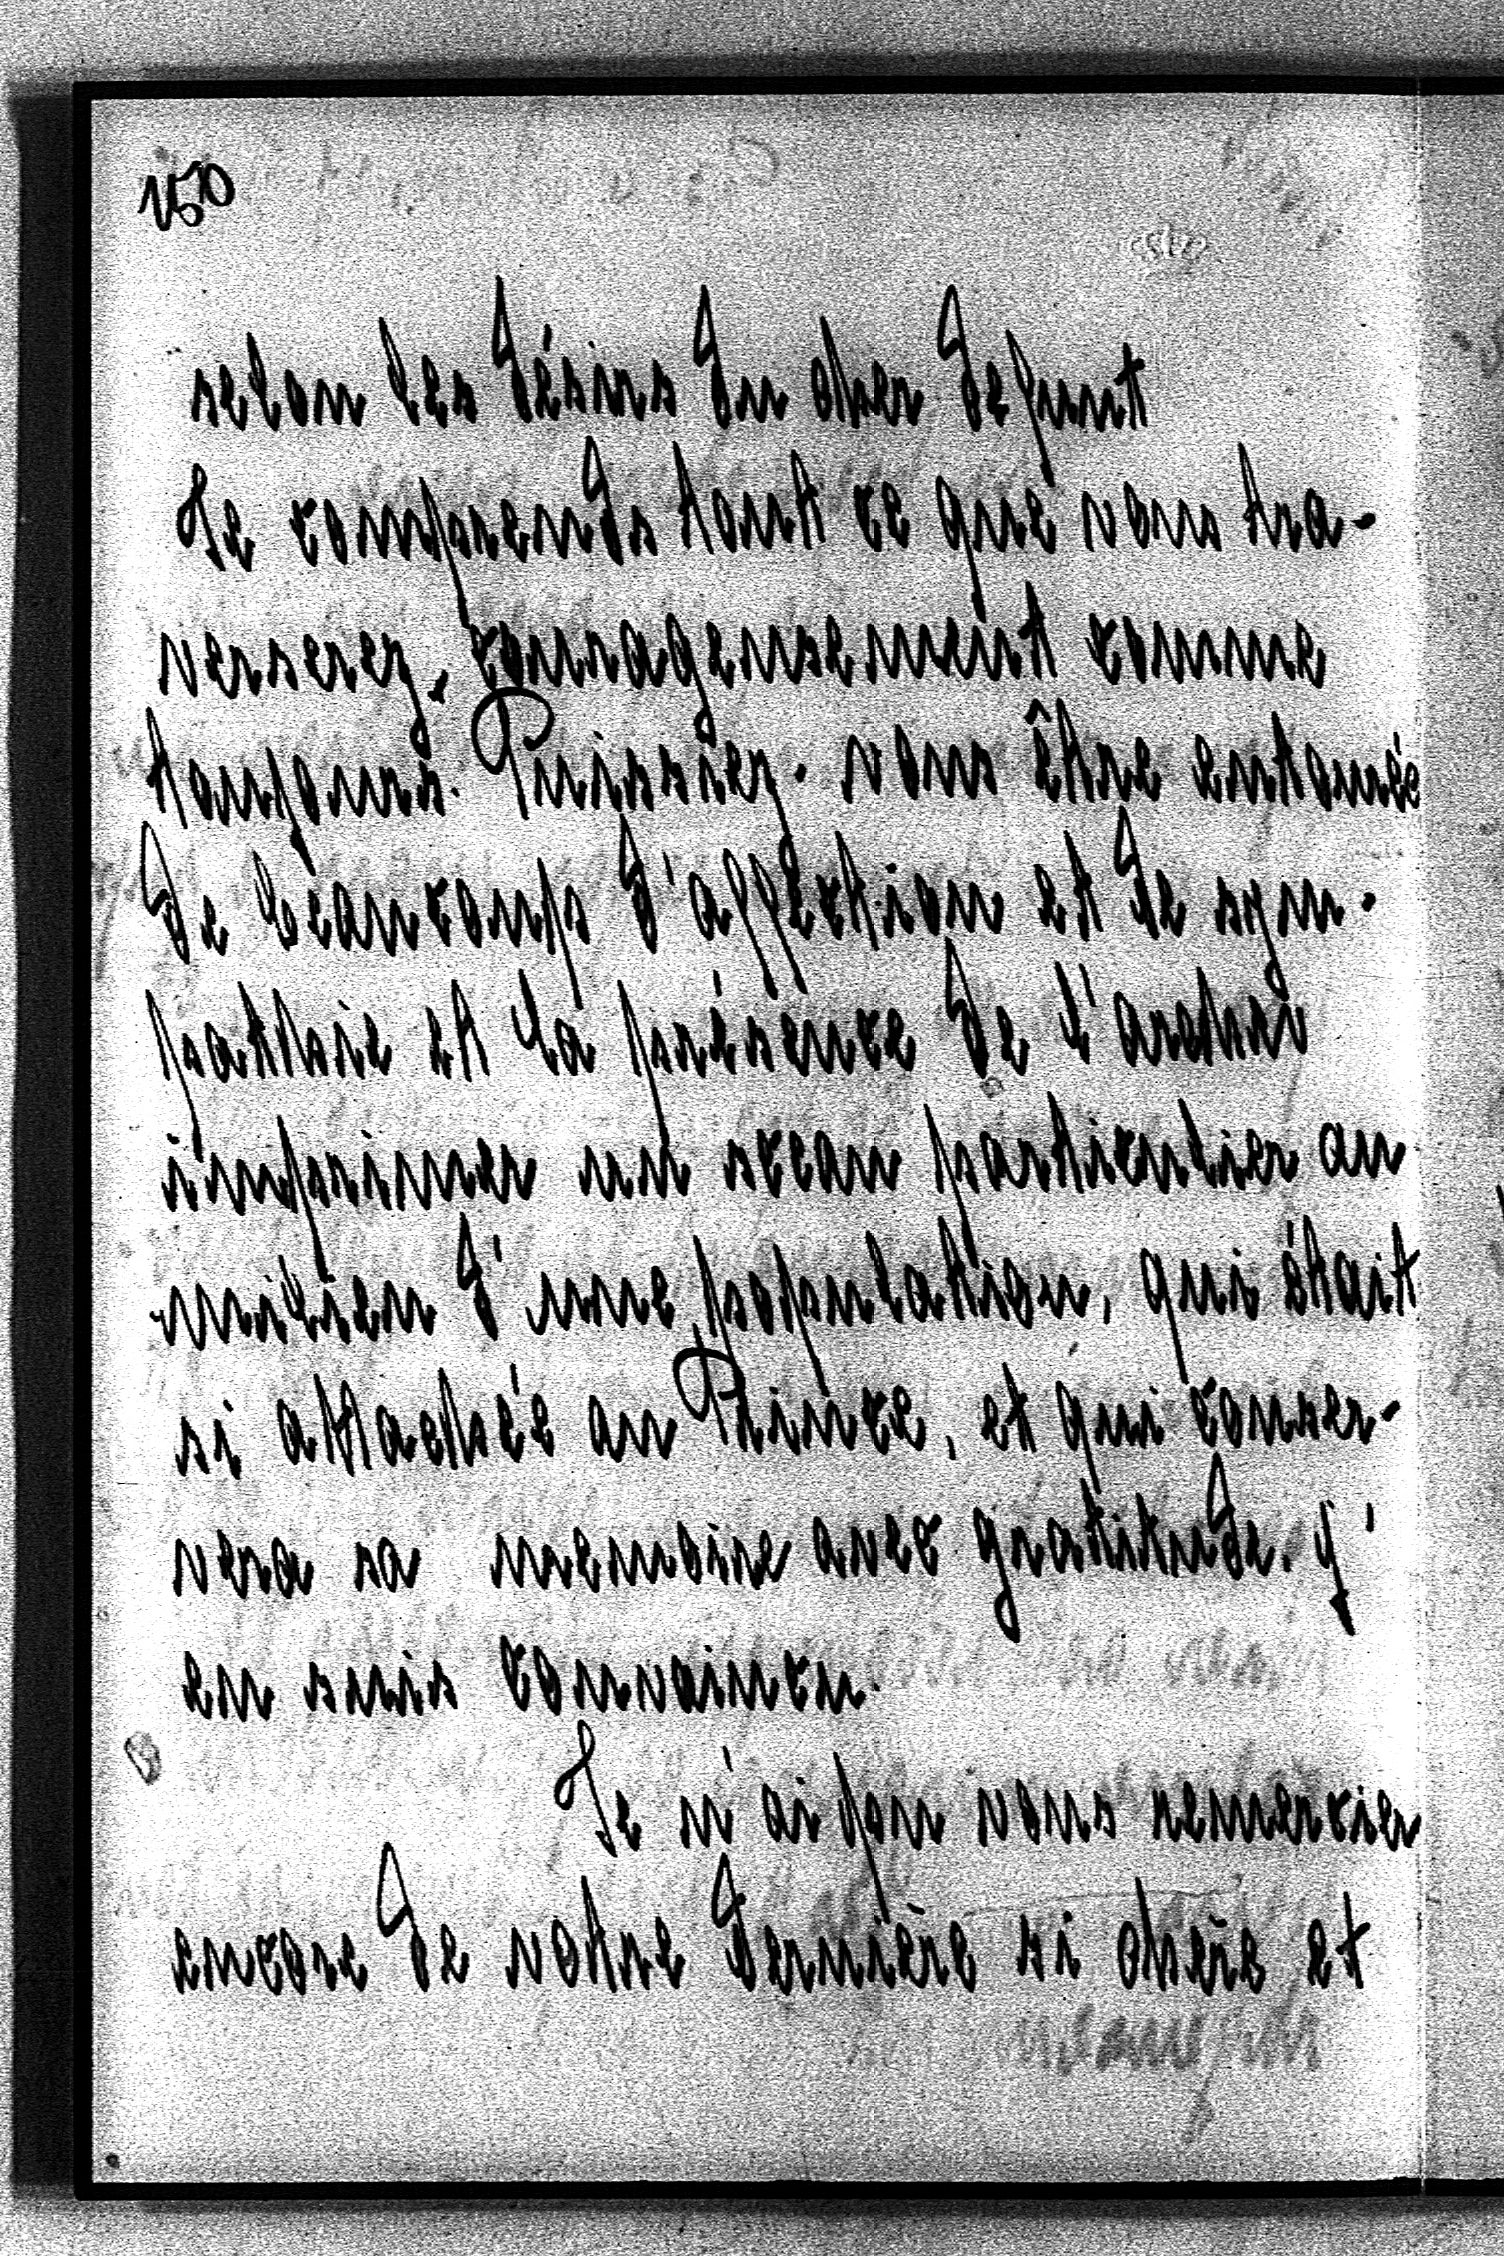 150
selon les désirs du cher defunt
Je comprends tout ce que vous tra-
verserez, courageusement comme
toujours. Puissiez-vous être entourée
de beaucoup d'affection et de sym-
pathie et la présence de l'archev
imprimer un sceau particulier au
milieu d'une population, qui était
si attachée au Prince, et qui conser-
vera sa memoire avec gratitude. j'
en suis convaincu.
Je n'ai pu vous remercier
encore de votre dernière si chère et